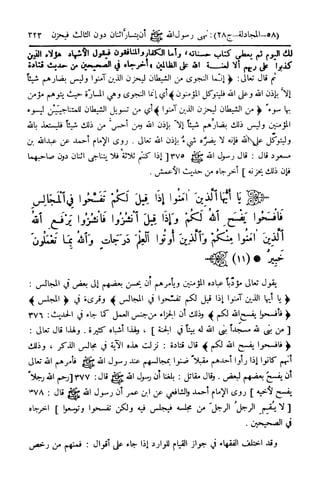 (٥٨—المجادلة...ج٢٨): نهى رسول الله ﷺ أن يتسارّ اثنان دون الثالث فيحزن ٣٢٣
لك اليوم ثم يعطى كتاب حسناته، وأما الكفار والمنافقون فيقول الأشهاد هؤلاء الذين
كذبوا على ربهم ألا لعنة الله على الظالمين، أخرجاه في الصحيحين من حديث قتادة
ثم قال تعالى: ﴿إنما النجوى من الشيطان ليحزن الذين آمنوا وليس بضارهم شيئاً
إلا بإذن الله وعلى الله فليتوكل المؤمنون﴾ أي إنما النجوى وهي المسارّة حيث يتوهم مؤمن
بها سوءً ﴿من الشيطان ليحزن الذين آمنوا﴾ أي من تسويل الشيطان للمتناجيَيْن ليسوء
المؤمنين وليس ذلك بضارهم شيئاً إلا بإذن الله ومن أحس من ذلك شيئاً فليستعذ بالله
وليتوكل على الله فإنه لا يضره شيء بإذن الله تعالى. روى الإمام أحمد عن عبد الله بن
مسعود قال: قال رسول الله ﷺ ٣٧٥ [إذا كنتم ثلاثة فلا يتناجى اثنان دون صاحبهما
فإن ذلك يحزنه] أخرجاه من حديث الأعمش.
يَا أَيُّهَا الَّذِينَ آمَنُوا إِذَا قِيلَ لَكُمْ تَفَسَّحُوا فِي الْمَجَالِسِ
فَافْسَحُوا يَفْسَحِ اللَّهُ لَكُمْ وَإِذَا قِيلَ انْشُزُوا فَانْشُزُوا يَرْفَعِ اللَّهُ
الَّذِينَ آمَنُوا مِنْكُمْ وَالَّذِينَ أُوتُوا الْعِلْمَ دَرَجَاتٍ وَاللَّهُ بِمَا تَعْمَلُونَ
خَبِيرٌ ﴿١١﴾
يقول تعالى مؤدباً عباده المؤمنين ويأمرهم أن يحسن بعضهم إلى بعض في المجالس:
﴿يا أيها الذين آمنوا إذا قيل لكم تفسّحوا في المجالس﴾ وقرىء في ﴿المجلس﴾
﴿فافسحوا يفسح الله لكم﴾ وذلك أن الجزاء من جنس العمل كما جاء في الحديث: ٣٧٦
[من بنى لله مسجداً بنى الله له بيتاً في الجنة]، ولهذا أشباه كثيرة. ولهذا قال تعالى:
﴿فافسحوا يفسح الله لكم﴾ قال قتادة: نزلت هذه الآية في مجالس الذكر، وذلك
أنهم كانوا إذا رأوا أحدهم مقبلاً ضنوا بمجالسهم عند رسول الله ﷺ فأمرهم الله تعالى
أن يفسح بعضهم لبعض. وقال مقاتل: بلغنا أن رسول الله ﷺ قال: ٣٧٧ [رحم الله رجلاً
يفسح لأخيه] روى الإمام أحمد والشافعي عن ابن عمر أن رسول الله ﷺ قال: ٣٧٨
[لا يُقِيم الرجلُ الرجلَ من مجلسه فيجلس فيه ولكن تفسحوا وتوسعوا] أخرجاه
في الصحيحين.
وقد اختلف الفقهاء في جواز القيام للوارد إذا جاء على أقوال: فمنهم من رخص